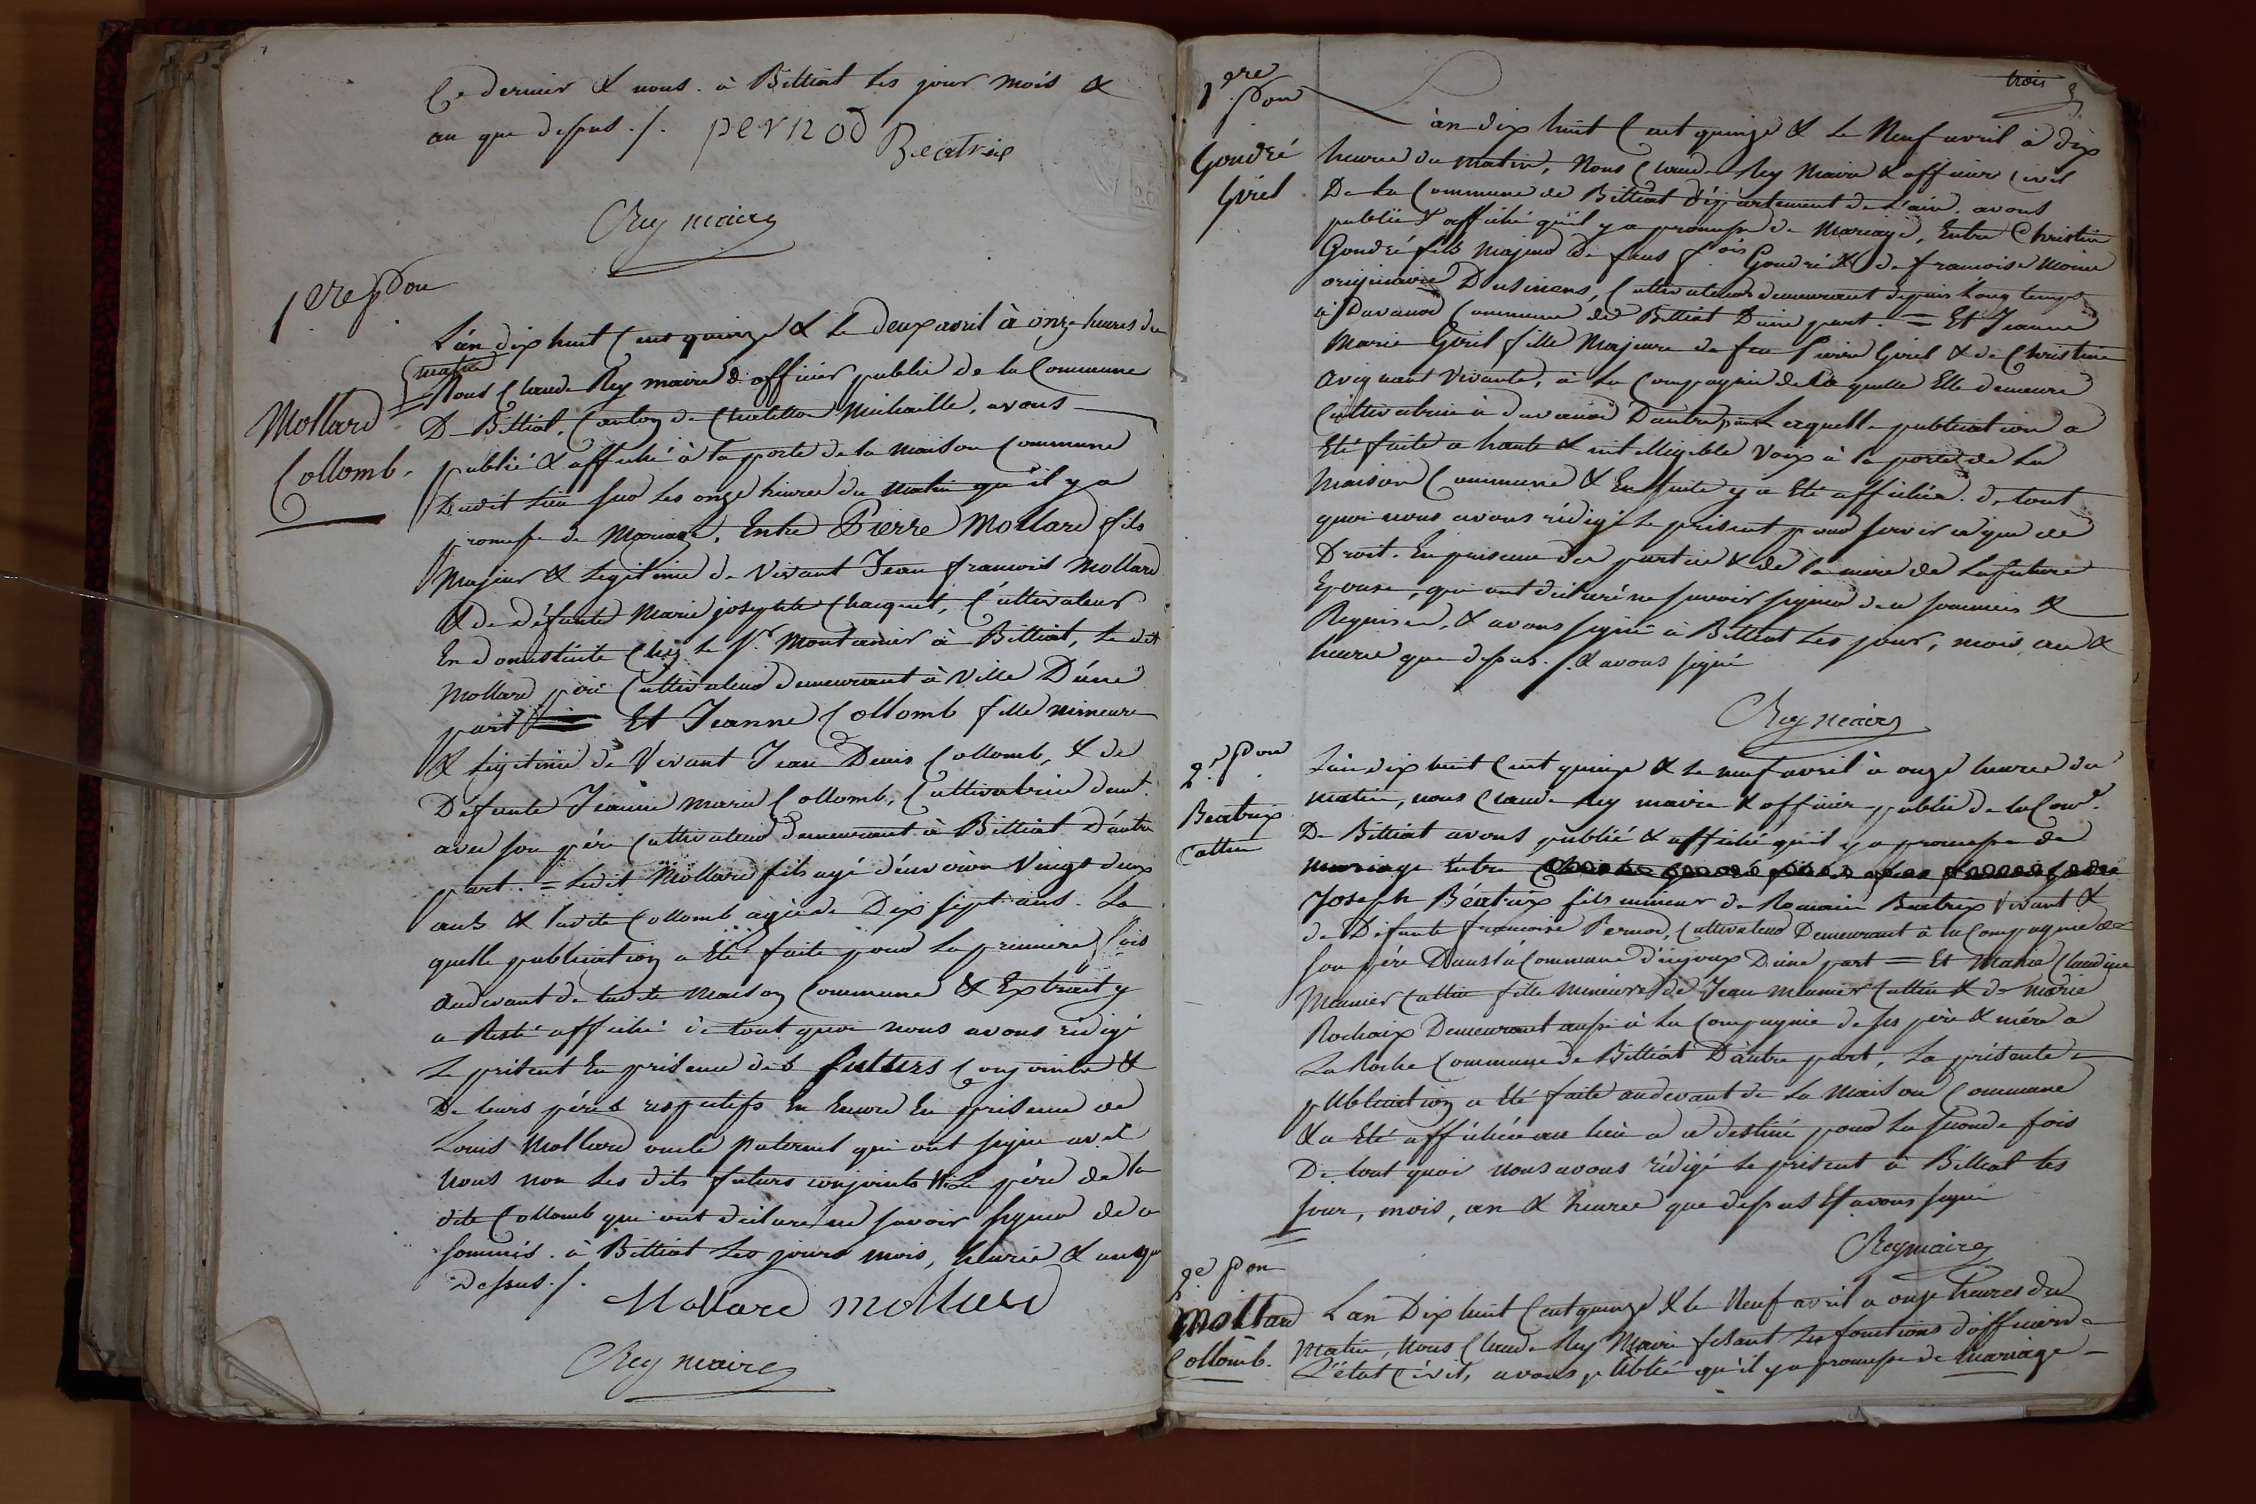 Ce dernier & nous. à Billiat les jour mois &
an que dessus ./. pernod Beatrix
Rey maire
1ere pon
L'an dix huit Cent quinze & le deux avril à onze heures du
matin
Nous Claude Rey maire & officier public de la Commune
Mollard
Collomb.
De Billiat, Canton de Chatillon Michaille, avons
publié & affiché à la porte de la maison Commune
Dudit Lieu sur les onze heures du matin qu'il y a
promesse de Mariage, Entre Pierre Mollard fils
Majeur & Legitime de Vivant Jean francois Mollard
& de défunte Marie josephte Chaquet, Cultivateur
En domesticite Chez le Sr. Montanier à Billiat, le dit
Mollard père Cultivateur demeurant à Ville D'une
part Et Jeanne Collomb fille mineure
& Legitime de Vivant Jean Denis Collomb, & de
Défunte Jeanne marie Collomb, Cultivatrice demt.
avec son père Cultivateur demeurant à Billiat D'autre
part. = Ledit Mollard fils agé d'environ Vingt deux
ans & ladite Collomb agée de Dix sept ans. La
quelle publication a Eté faite pour la premiere fois
audevant de ladite maison Commune & Extrait y
a Resté affiché de tout quoi nous avons rédigé
Le présent En présence des futurs Conjoints &
De leurs pères respectifs En Encore En présence de
Louis Mollard oncle paternel qui ont signé avec
nous non les dits futurs conjoints & le père de la
dite Collomb qui ont déclaré ne savoir signer de ce
sommés. à Billiat les jours mois, heure & an que
Dessus ./.
Mollard mollard
Rey maire
trois 3
1ere pon
Goudré
Girel
L'an dix huit Cent quinze & le Neuf avril à dix
heures du matin, Nous Claude Rey Maire & officier civil
De la Commune de Billiat département de l'ain, avons
publié & affiché qu'il y a promesse de Mariage, Entre Christin
Goudré fils Majeur de feus fois Goudré & de francoise Moine
originaire Dusinens, Cultivateur demeurant depuis Long temps
à Davanod Commune de Billiat D'une part. = Et Jeanne
Marie Girel fille Majeure de feu Pierre Girel & de Christine
Avignant Vivante, à la Compagnie de Laquelle Elle demeure
Cultivatrice à davanod D'autre part Laquelle publication a
Eté faite a haute & intelligible Voix à la porte de La
Maison Commune & Ensuite y a Eté affichée. de tout
quoi nous avons rédigé Le présent pour servir ce que de
Droit. En présence des parties & de la mere de La future
Epouse, qui ont déclaré ne savoir signer de ce sommées &
Requises, & avons signé à Billiat Les jour, mois an &
heure que dessus ./. & avons signé
Rey maire
2e pon
Beatrix
Cattin
L'an dix huit Cent quinze & le neuf avril à onze heures du
matin, nous Claude Rey maire & officier public de la Come.
De Billiat avons publié & affiché qu'il y a promesse de
mariage Entre
Joseph Béatrix fils mineur de Romain Beatrix Vivant &
de Défunte francoise Pernod, Cultivateur Demeurant à la Compagnie de
son père Dans la Commune d'injoux D'une part = Et Marie Claudine
Meunier Cattin fille mineure de Jean Meunier Cattin & de marie
Rochaix Demeurant aussi à la Compagnie de ses père & mère a
La Roche Commune de Billiat D'autre part, La présente
publication a Eté faite audevant de La Maison Commune
& a Eté affichée au lieu a ce destiné pour La seconde fois
De tout quoi nous avons rédigé le présent à Billiat les
jour, mois, an & heure que dessus Et avons signé
Rey maire
2e pon
Mollard
Collomb.
L'an Dix huit Cent quinze & le Neuf avril a onze heures du
Matin, Nous Claude Rey Maire fesant Les fonctions d'officier de
L'état Civil, avons publié qu'il y a promesse de Mariage